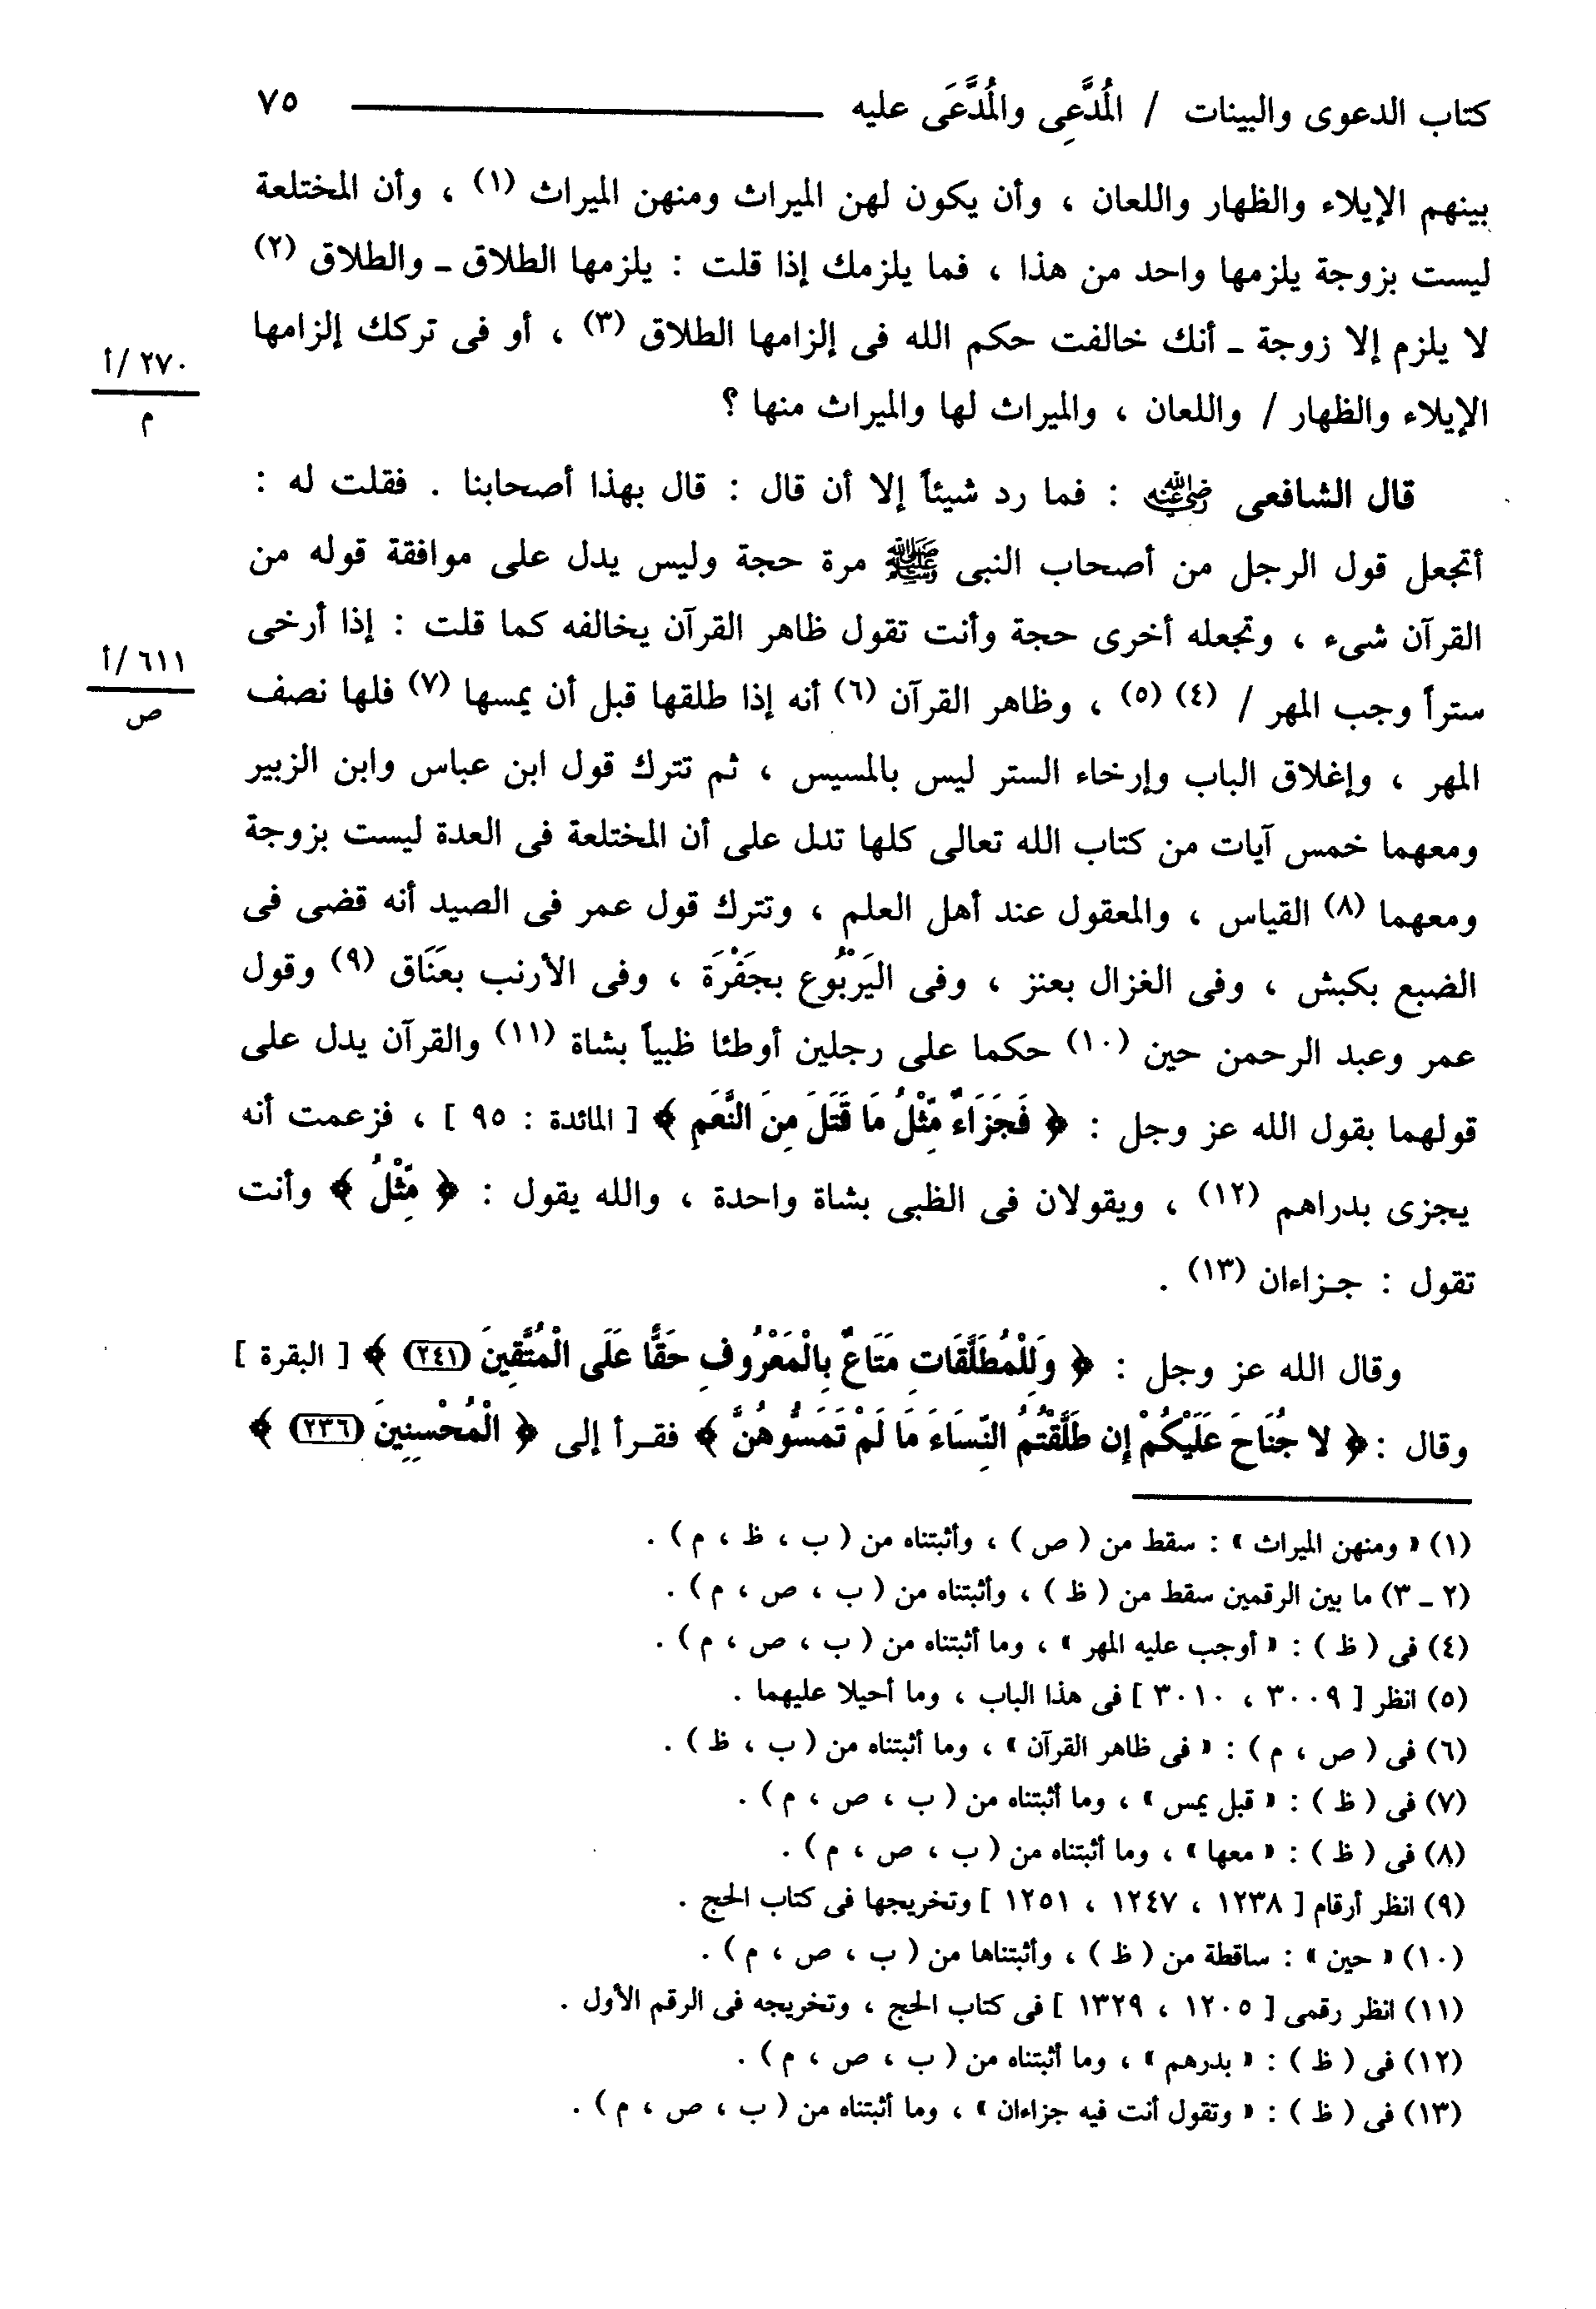 كتاب الدعوى والبينات / الْمُدَّعِى والْمُدَّعَى عليه ٧٥
بينهم الإيلاء والظهار واللعان ، وأن يكون لهن الميراث ومنهن الميراث (١) ، وأن المختلعة
ليست بزوجة يلزمها واحد من هذا ، فما يلزمك إذا قلت : يلزمها الطلاق ـ والطلاق (٢)
لا يلزم إلا زوجة ـ أنك خالفت حكم الله فى إلزامها الطلاق (٣) ، أو فى تركك إلزامها
٢٧٠ /أ
م
الإيلاء والظهار / واللعان ، والميراث لها والميراث منها ؟
قال الشافعى رضي الله عنه : فما رد شيئاً إلا أن قال : قال بهذا أصحابنا . فقلت له :
أتجعل قول الرجل من أصحاب النبى ﷺ مرة حجة وليس يدل على موافقة قوله من
القرآن شىء ، وتجعله أخرى حجة وأنت تقول ظاهر القرآن يخالفه كما قلت : إذا أرخى
٦١١ /أ
ص
ستراً وجب المهر / (٤) (٥) ، وظاهر القرآن (٦) أنه إذا طلقها قبل أن يمسها (٧) فلها نصف
المهر ، وإغلاق الباب وإرخاء الستر ليس بالمسيس ، ثم تترك قول ابن عباس وابن الزبير
ومعهما خمس آيات من كتاب الله تعالى كلها تدل على أن المختلعة فى العدة ليست بزوجة
ومعهما (٨) القياس ، والمعقول عند أهل العلم ، وتترك قول عمر فى الصيد أنه قضى فى
الضبع بكبش ، وفى الغزال بعنز ، وفى اليَرْبُوع بجَفْرَة ، وفى الأرنب بعَنَاق (٩) وقول
عمر وعبد الرحمن حين (١٠) حكما على رجلين أوطئا ظبياً بشاة (١١) والقرآن يدل على
قولهما بقول الله عز وجل : ﴿ فَجَزَاءٌ مِّثْلُ مَا قَتَلَ مِنَ النَّعَمِ ﴾ [ المائدة : ٩٥ ] ، فزعمت أنه
يجزى بدراهم (١٢) ، ويقولان فى الظبى بشاة واحدة ، والله يقول : ﴿ مِّثْلُ ﴾ وأنت
تقول : جـزاءان (١٣) .
وقال الله عز وجل : ﴿ وَلِلْمُطَلَّقَاتِ مَتَاعٌ بِالْمَعْرُوفِ حَقًّا عَلَى الْمُتَّقِينَ (٢٤١) ﴾ [ البقرة ]
وقال : ﴿ لا جُنَاحَ عَلَيْكُمْ إِن طَلَّقْتُمُ النِّسَاءَ مَا لَمْ تَمَسُّوهُنَّ ﴾ فقـرأ إلى ﴿ الْمُحْسِنِينَ (٢٣٦) ﴾
(١) « ومنهن الميراث » : سقط من ( ص ) ، وأثبتناه من ( ب ، ظ ، م ) .
(٢ ـ ٣) ما بين الرقمين سقط من ( ظ ) ، وأثبتناه من ( ب ، ص ، م ) .
(٤) فى ( ظ ) : « أوجب عليه المهر » ، وما أثبتناه من ( ب ، ص ، م ) .
(٥) انظر [ ٣٠٠٩ ، ٣٠١٠ ] فى هذا الباب ، وما أحيلا عليهما .
(٦) فى ( ص ، م ) : « فى ظاهر القرآن » ، وما أثبتناه من ( ب ، ظ ) .
(٧) فى ( ظ ) : « قبل يمس » ، وما أثبتناه من ( ب ، ص ، م ) .
(٨) فى ( ظ ) : « معها » ، وما أثبتناه من ( ب ، ص ، م ) .
(٩) انظر أرقام [ ١٢٣٨ ، ١٢٤٧ ، ١٢٥١ ] وتخريجها فى كتاب الحج .
(١٠) « حين » : ساقطة من ( ظ ) ، وأثبتناها من ( ب ، ص ، م ) .
(١١) انظر رقمى [ ١٢٠٥ ، ١٣٢٩ ] فى كتاب الحج ، وتخريجه فى الرقم الأول .
(١٢) فى ( ظ ) : « بدرهم » ، وما أثبتناه من ( ب ، ص ، م ) .
(١٣) فى ( ظ ) : « وتقول أنت فيه جزاءان » ، وما أثبتناه من ( ب ، ص ، م ) .